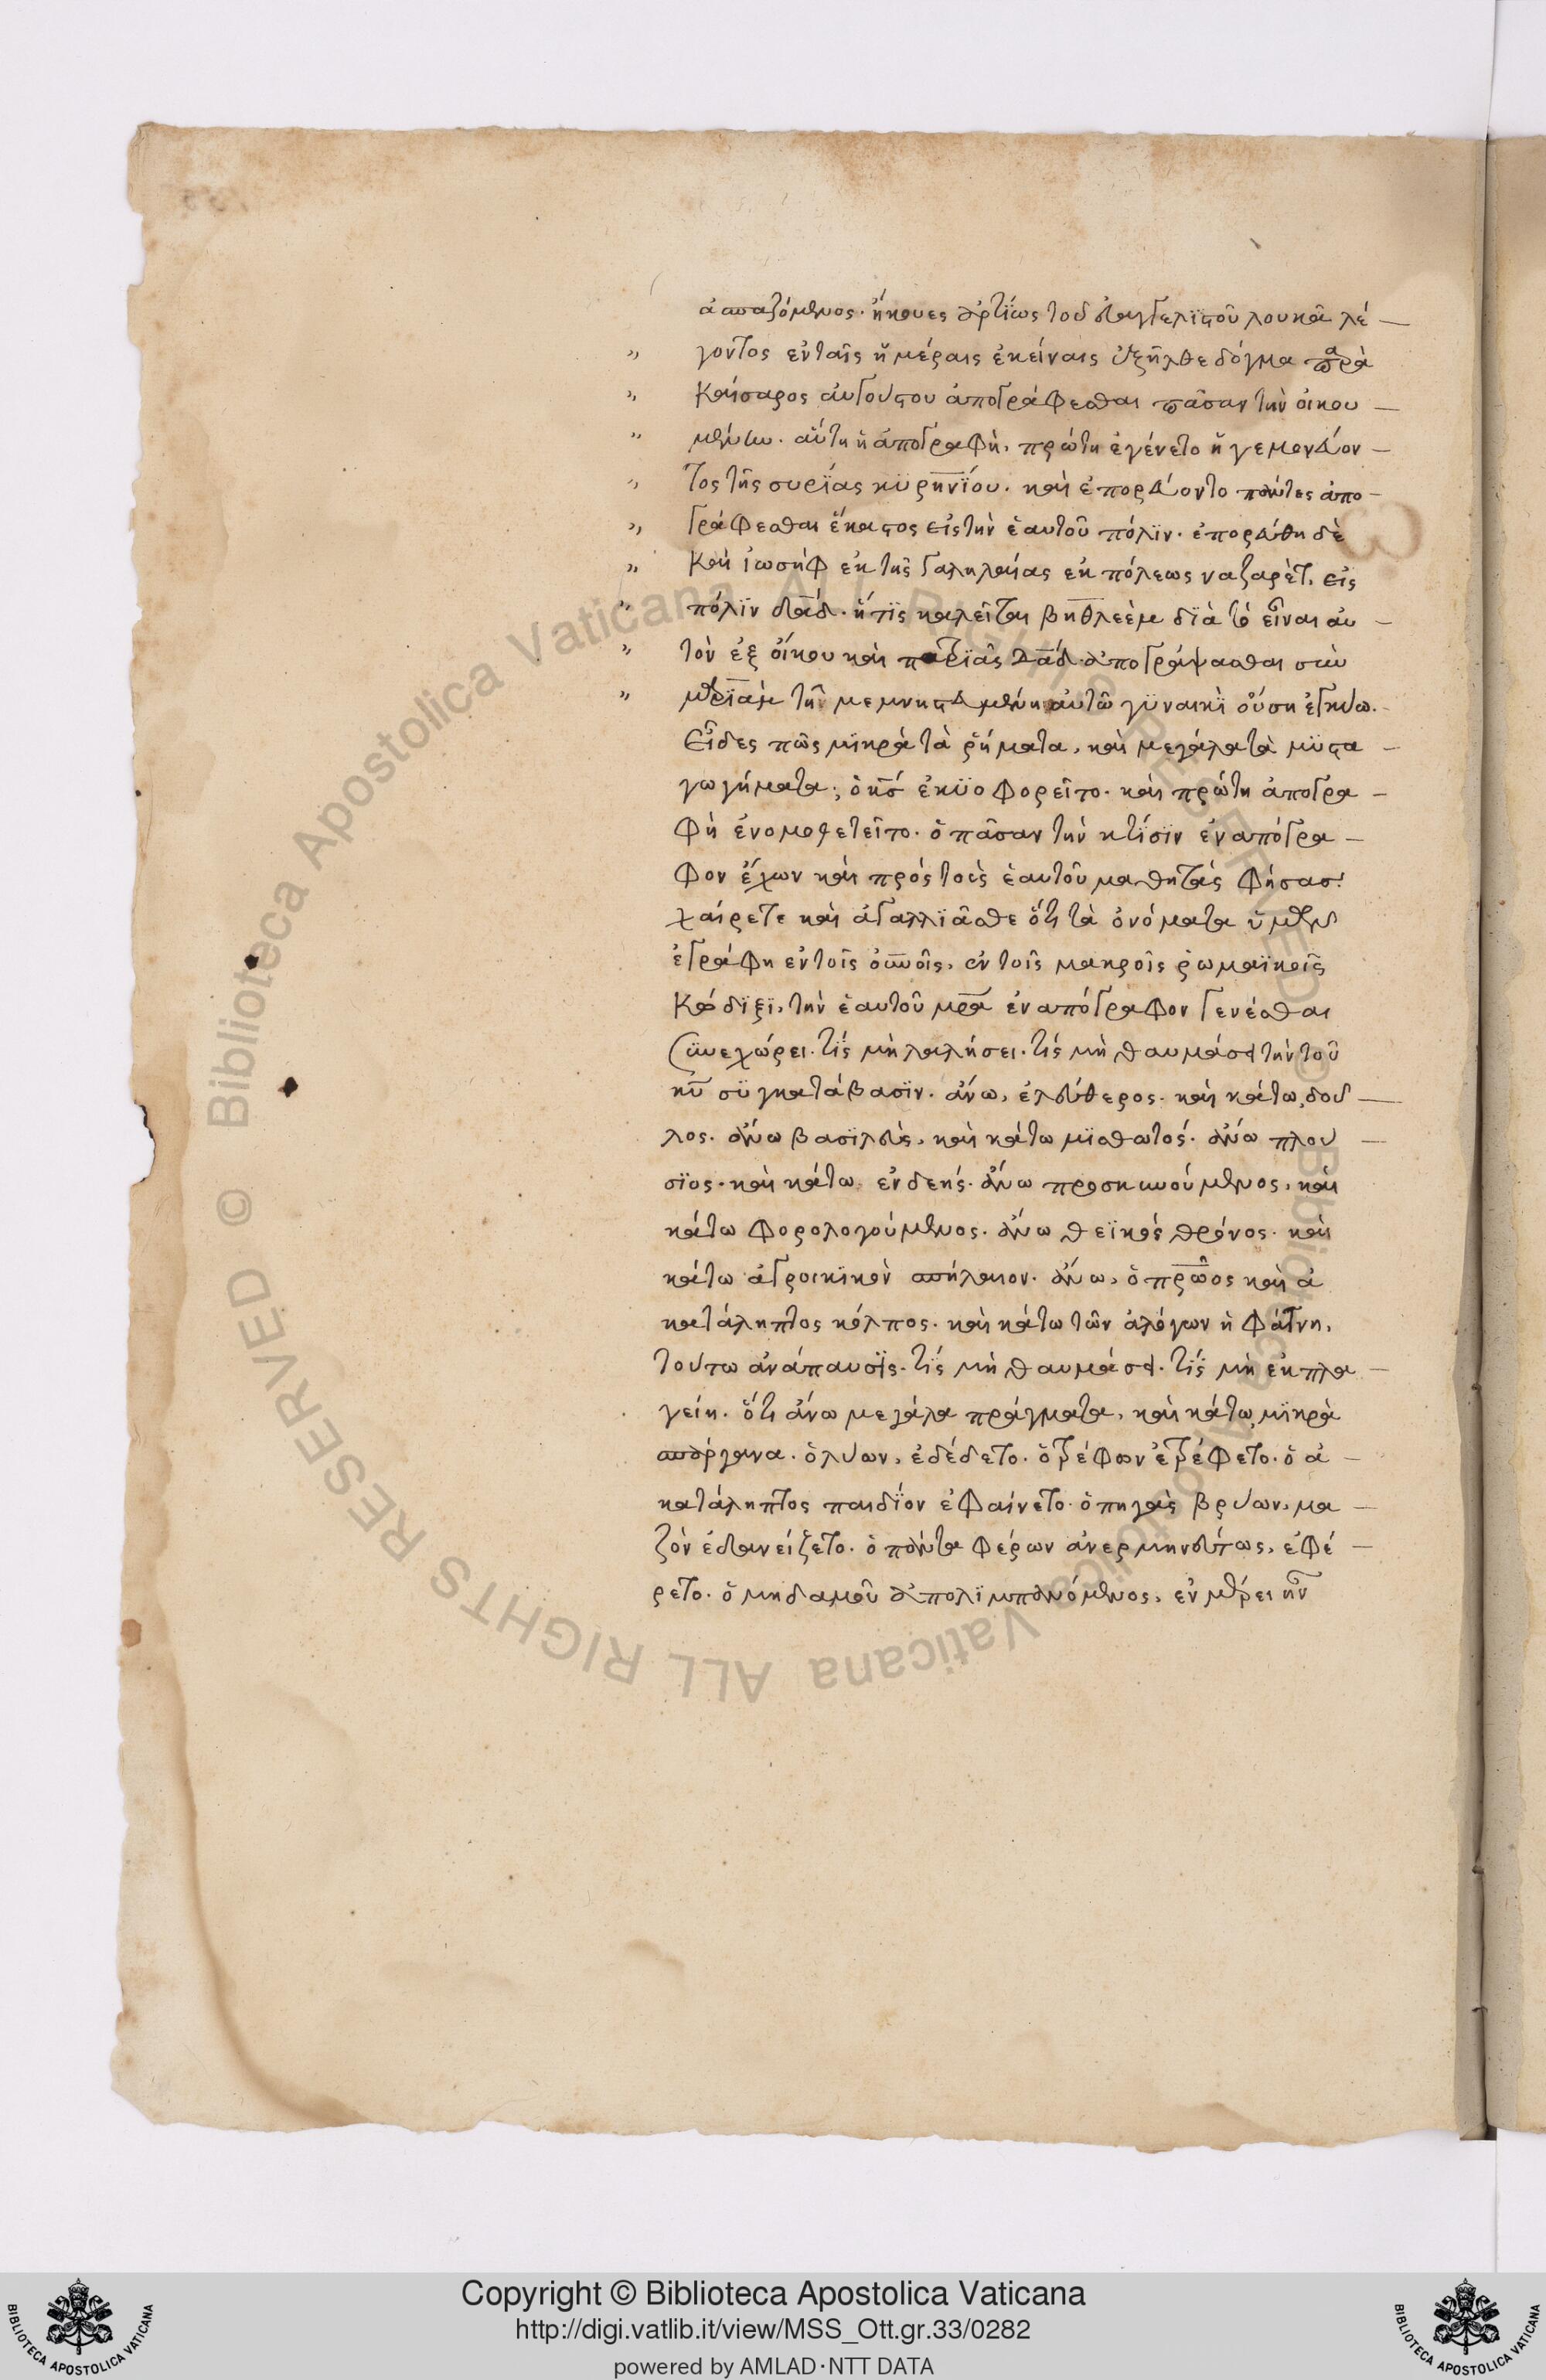 ἀσπαζόμενος. ἤκουες ἀρτίως τοῦ εὐαγγελϊστοῦ λουκᾶ λέ –
" γοντος ἐν ταῖς ἡμέραις ἐκείναις ἐξῆλθε δόγμα παρὰ
" Καίσαρος αὐγούστου ἀπογράφεσθαι πᾶσαν τὴν οἰκου –
" μένην. αὕτη ἡ ἀπογραφὴ, πρώτη ἐγένετο ἡγεμονεύον –
" τος τῆς συρΐας κϋρηνΐου. καὶ ἐπορεύοντο πάντες ἀπο –
" γράφεσθαι ἕκαστος εἰς τὴν ἑαυτοῦ πόλϊν. ἐπορεύθη δὲ
" Καὶ ἰωσὴφ ἐκ τῆς γαλιλαίας ἐκ πόλεως ναζαρὲτ, εἰς
" πόλϊν δᾱδ. ἥτϊς καλεῖται βηθλεὲμ δϊὰ τὸ εἶναι αὐ –
" τὸν ἐξ οἴκου καὶ πατρϊᾶς δᾱδ. ἀπογράψασθαι σὺν
" μαρϊὰμ τῇ μεμνηστευμένη αὐτῶ γϋναικὶ οὔση ἐγκύω.
Εἶδες πῶς μϊκρὰ τὰ ῥήματα, καὶ μεγάλα τὰ μϋστα –
γωγήματα; ὁ κ̅ς ἐκϋοφορεῖτο. καὶ πρώτη ἀπογρα –
φὴ ἐνομοθετεῖτο. ὁ πᾶσαν τὴν κτίσϊν ἐναπόγρα –
φον ἔχων καὶ πρὸς τοὺς ἑαυτοῦ μαθητὰς φήσας.
χαίρετε καὶ ἀγαλλϊᾶσθε ὅτι τὰ ὀνόματα ὑμῶν
ἐγράφη ἐν τοῖς ο̅υ̅νοῖς, ἐν τοῖς μακροῖς ῥωμαϊκοῖς
Κώδϊξϊ, τὴν ἑαυτοῦ μ̅ρ̅α ἐναπόγραφον γενέσθαι
Συνεχώρει. τίς μὴ λαλήσει. τίς μὴ θαυμάσει τὴν τοῦ
κ̅υ̅ σϋγκατάβασϊν. ἄνω, ἐλεύθερος. καὶ κάτω, δοῦ –
λος. ἄνω βασϊλεὺς, καὶ κάτω μϊσθωτός. ἄνω πλού –
σϊος. καὶ κάτω ἐνδεής. ἄνω προσκυνούμενος, καὶ
κάτω φορολογούμενος. ἄνω θεϊκὸς θρόνος. καὶ
κάτω ἀγροικϊκὸν σπήλαιον. ἄνω, ὁ π̅ρ̅ῶος καὶ ἀ
κατάληπτος κόλπος. καὶ κάτω τῶν ἀλόγων ἡ φάτνη,
τούτω ἀνάπαυσϊς. τίς μὴ θαυμάσει. τίς μὴ ἐκπλα –
γείη. ὅτι ἄνω μεγάλα πράγματα, καὶ κάτω μϊκρὰ
σπάργανα. ὁ λύων, ἐδέδετο. ὁ τρέφων ἐτρέφετο. ὁ ἀ –
κατάληπτος παιδίον ἐφαίνετο. ὁ πηγὰς βρύων, μα –
ζὸν ἐδανείζετο. ὁ πάντα φέρων ἀνερμηνεύτως, ἐφέ –
ρετο. ὁ μηδαμοῦ ἀπολϊμπανόμενος, ἐν μέρει ἦν
Copyright © Biblioteca Apostolica Vaticana
http://digi.vatlib.it/view/MSS_Ott.gr.33/0282
powered by AMLAD·NTT DATA